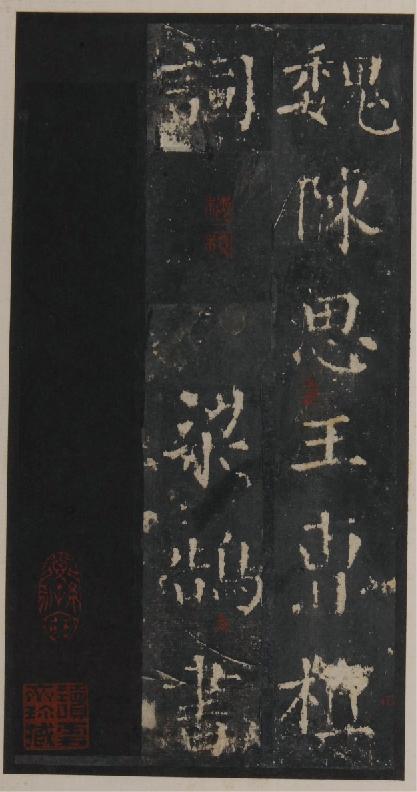 魏陳思王曹植
詞 梁鵠書